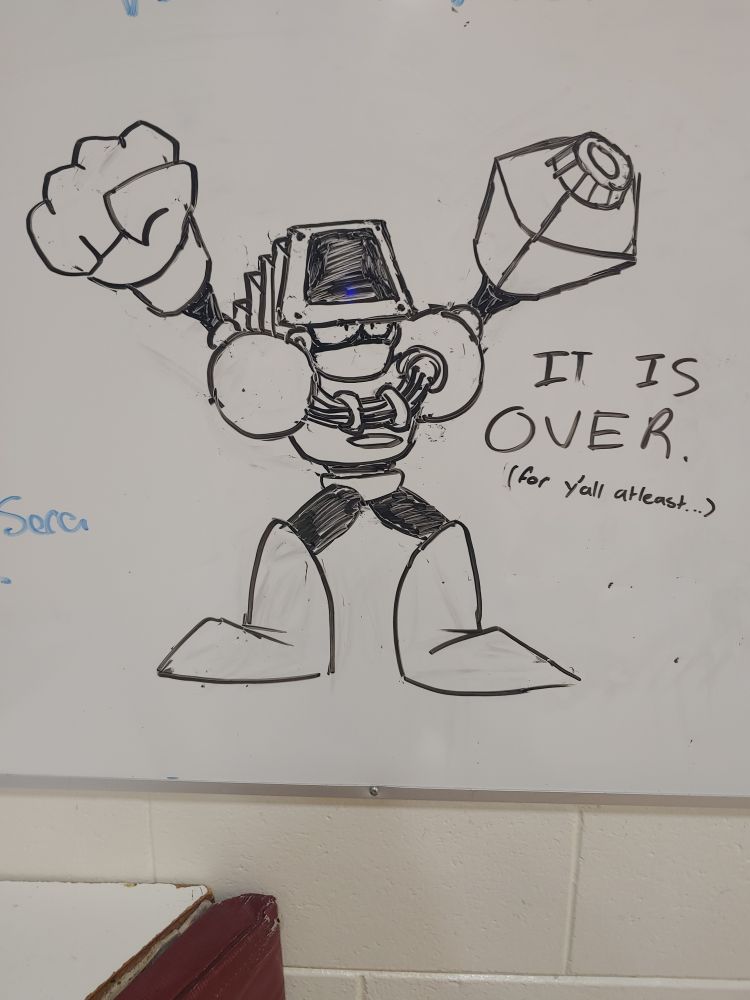 IT IS
OVER.
(for y'all atleast...)